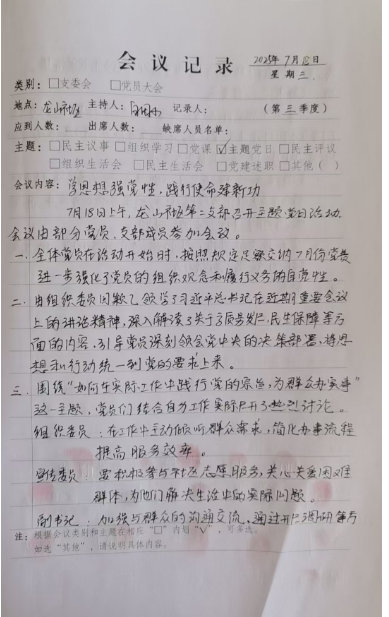 会议记录
2025年7月18日
星期三
类别：□支委会 □党员大会
地点：龙山社区 主持人： 记录人： （第三季度）
应到人数： 出席人数： 缺席人员名单：
主题：□民主议事 □组织学习 □党课 ☑主题党日 □民主评议
□组织生活会 □民主生活会 □党建述职 □其他（ ）
会议内容：学思想强党性，践行使命建新功
7月18日上午，龙山社区第二支部召开主题党日活动，
会议由部分党员、支部成员参加会议。
一、全体党员在活动开始时，按照规定足额交纳7月份党费
进一步强化了党员的组织观念和履行义务的自觉性。
二、由组织委员领学了习近平总书记在近期重要会议
上的讲话精神，深入解读了关于高质量发展、民生保障等方
面的内容，引导党员深刻领会党中央的决策部署，将思
想和行动统一到党的要求上来。
三、围绕“如何在实际工作中践行党的宗旨，为群众办实事”
这一主题，党员们结合自身工作实际展开了热烈讨论。
组织委员：在工作中主动倾听群众需求，简化办事流程
提高服务效率。
宣传委员：要积极参与社区志愿服务，关心关爱困难
群体，为他们解决生活中的实际问题。
副书记：加强与群众的沟通交流，通过开展调研等方
注：根据会议类别和主题在相应“□”内划“√”，可多选。
如选“其他”，请说明具体内容。